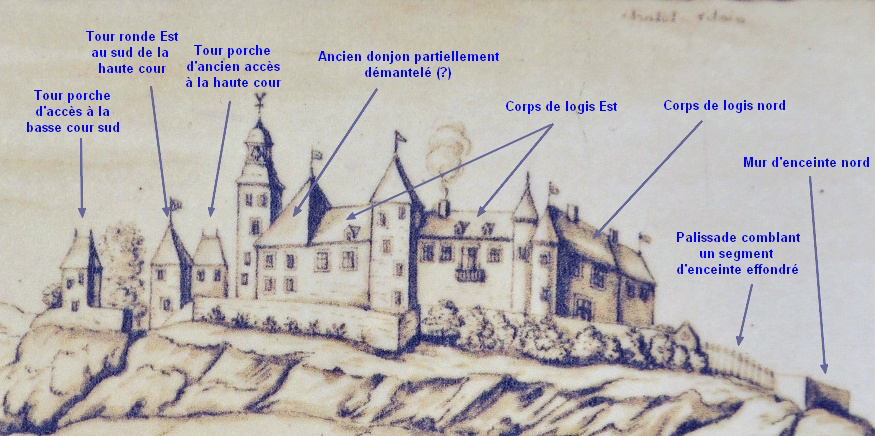 Tour ronde Est
au sud de la
haute cour
Tour porche
d'ancien accès
à la haute cour
Ancien donjon partiellement
démantelé (?)
Tour porche
d'accès à la
basse cour sud
Corps de logis Est
Corps de logis nord
Mur d'enceinte nord
Palissade comblant
un segment
d'enceinte effondré